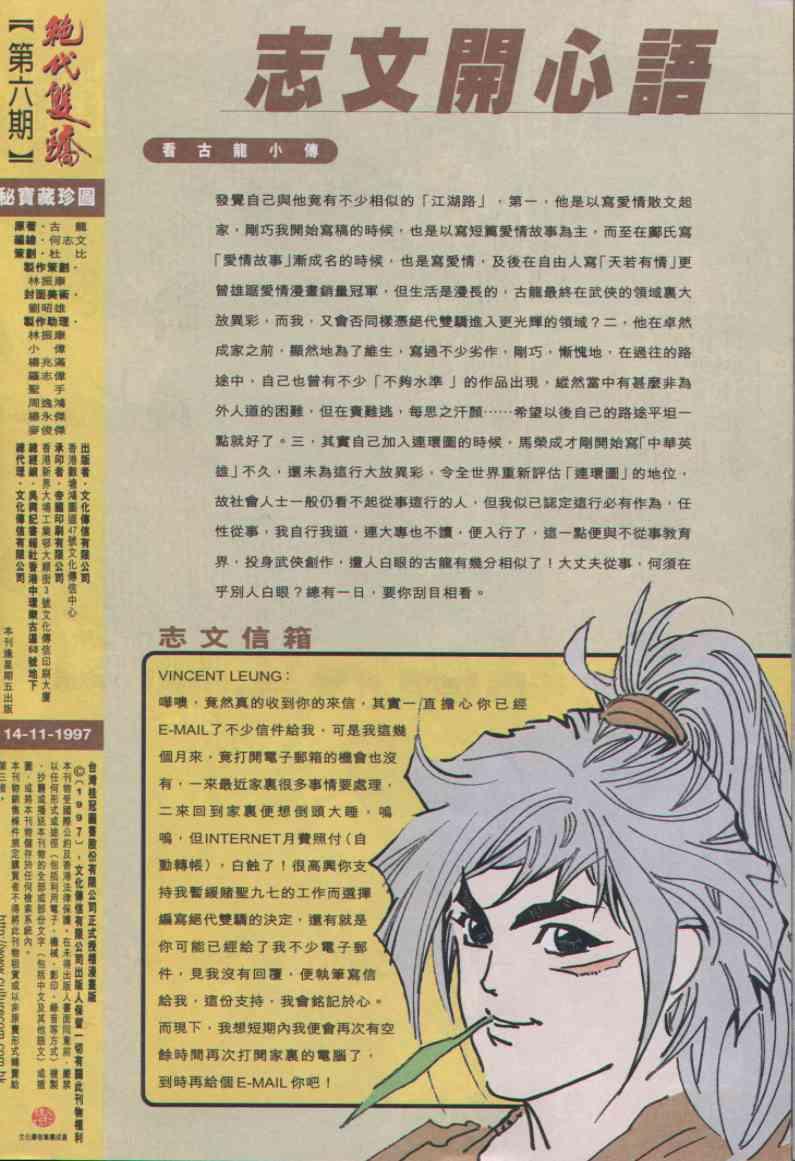 絕代雙驕
【第六期】
秘寶藏珍圖
原著・古龍
編繪・何志文
策劃・杜比
製作策劃・
林振康
封面美術・
劉昭雄
製作助理・
林振康
小偉
楊兆滿
羅志偉
聖手
周逸鴻
楊永傑
麥俊傑
出版者・文化傳信有限公司
香港觀塘鴻圖道47號文化傳信中心
承印者・帝國印刷有限公司
香港新界大埔工業邨大順街3號文化傳信印刷大廈
總經銷・吳興記書報社香港中環樂古道68號地下
總代理・文化傳信有限公司
本刊逢星期五出版
14-11-1997
台灣桂冠圖書股份有限公司正式授權漫畫版
©(1997)，文化傳信有限公司出版人保留一切有關此刊物權利
本刊物受國際公約及香港法律保護。在未得出版人書面同意前，嚴禁
以任何形式或途徑（包括利用電子、機械、影印、錄音等方式）複製
、抄襲或播送本刊物的全部或部份文字（包括中文及其他語文）或插
圖，或將本刊物儲存於任何檢索系統內。
本刊物銷售條件規定購買者不得將此刊物租賃或以非原賣形式轉賣給
第三者。
http://www.culturecom.com.hk
文化傳信集團成員
志文開心語
看古龍小傳
發覺自己與他竟有不少相似的「江湖路」，第一，他是以寫愛情散文起
家，剛巧我開始寫稿的時候，也是以寫短篇愛情故事為主，而至在鄺氏寫
「愛情故事」漸成名的時候，也是寫愛情，及後在自由人寫「天若有情」更
曾雄踞愛情漫畫銷量冠軍，但生活是漫長的，古龍最終在武俠的領域裏大
放異彩，而我，又會否同樣憑絕代雙驕進入更光輝的領域？二，他在卓然
成家之前，顯然地為了維生，寫過不少劣作，剛巧，慚愧地，在過往的路
途中，自己也曾有不少「不夠水準」的作品出現，縱然當中有甚麼非為
外人道的困難，但在責難逃，每思之汗顏……希望以後自己的路途平坦一
點就好了。三，其實自己加入連環圖的時候，馬榮成才剛開始寫「中華英
雄」不久，還未為這行大放異彩，令全世界重新評估「連環圖」的地位，
故社會人士一般仍看不起從事這行的人，但我似已認定這行必有作為，任
性從事，我自行我道，連大專也不讀，便入行了，這一點便與不從事教育
界，投身武俠創作，遭人白眼的古龍有幾分相似了！大丈夫從事，何須在
乎別人白眼？總有一日，要你刮目相看。
志文信箱
VINCENT LEUNG：
嘩噢，竟然真的收到你的來信，其實一直擔心你已經
E-MAIL了不少信件給我，可是我這幾
個月來，竟打開電子郵箱的機會也沒
有，一來最近家裏很多事情要處理，
二來回到家裏便想倒頭大睡，嗚
嗚，但INTERNET月費照付（自
動轉帳），白蝕了！很高興你支
持我暫緩賭聖九七的工作而選擇
編寫絕代雙驕的決定，還有就是
你可能已經給了我不少電子郵
件，見我沒有回覆，便執筆寫信
給我，這份支持，我會銘記於心。
而現下，我想短期內我便會再次有空
餘時間再次打開家裏的電腦了，
到時再給個E-MAIL你吧！